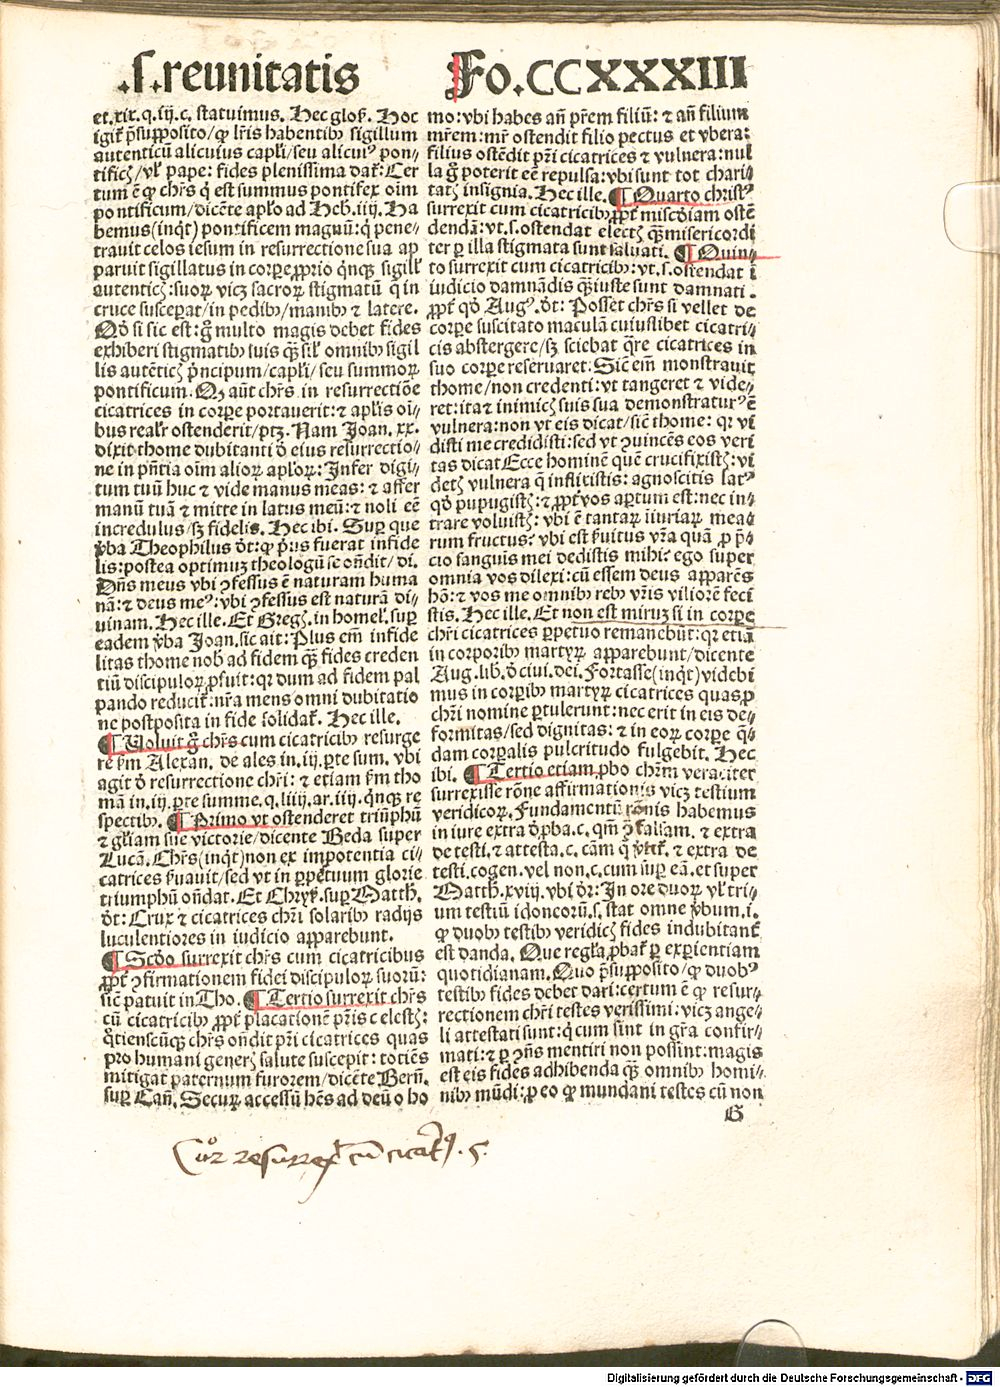 .ſ.reunitatis
Fo.CCXXXXIII
et.xix.q.iij.c. ſtatuimus. Hec gloſ. Hoc
igit̃ p̃ſuppoſito/ꝙ lr̃is habentibꝰ ſigillum
autenticũ alicuius capl̃i/ſeu alicuiꝰ pon⸗
tificꝭ/vl̓ pape: fides pleniſſima dat̃: Cer
tum ẽ ꝙ chr̃s q̇ eſt ſummus pontifex oĩm
pontificum/dicẽte apl̃o ad Heb.iiij. Ha
bemus(inqt̃) pontificem magnũ: q̇ pene⸗
trauit celos ieſum in reſurrectione ſua ap
paruit ſigillatus in corꝑe ꝓprio q̇nqꝫ ſigill̃
autenticꝭ: ſuoꝝ vicꝫ ſacroꝝ ſtigmatũ q̃ in
cruce ſuſceperat/in pedibꝰ/manibꝰ ⁊ latere.
Qð ſi ſic eſt: g̃ multo magis debet fides
exhiberi ſtigmatibꝰ ſuis q̃ꝫ ſil̓ omnibꝰ ſigil
lis autẽticꝭ p̃ncipum/capl̃i/ſeu ſummoꝝ
pontificum. Qꝫ aũt chr̃s in reſurrectiõe
cicatrices in corꝑe portauerit: ⁊ apl̃is oĩ⸗
bus realr̃ oſtenderit/ptꝫ. Nam Joan.xx.
dixit thome dubitanti ð eius reſurrectio⸗
ne in pñtia oĩm alioꝝ apl̃oꝝ: Infer digi⸗
tum tuũ huc ⁊ vide manus meas: ⁊ affer
manũ tuã ⁊ mitte in latus meũ: ⁊ noli eẽ
incredulus/ſꝫ fidelis. Hec ibi. Suꝑ que
v̓ba Theophilus ðt: ꝙ pꝰus fuerat infide
lis: poſtea optimuꝫ theologũ ſe oñdit/di.
Dñs meus vbi ꝯfeſſus ẽ naturam huma
nã: ⁊ deus meꝰ: vbi ꝯfeſſus eſt naturã di⸗
uinam. Hec ille. Et Gregꝭ. in homel̓. ſuꝑ
eadem v̓ba Joan. ſic ait: Plus em̃ infide
litas thome nob̓ ad fidem q̃ꝫ fides creden
tiũ diſcipuloꝝ ꝓfuit: qꝛ dum ad fidem pal
pando reducit̃: nr̃a mens omni dubitatio
ne poſtpoſita in fide ſolidat̃. Hec ille.
¶ Uoluit g̃ chr̃s cum cicatricibꝰ reſurge
re ẜm Alexan. de ales in.iij. ꝑte ſum. vbi
agit ð reſurrectione chr̃i: ⁊ etiam ẜm tho
mã in.iij. ꝑte ſumme.q.liiij.ar.iiij. q̇nqꝫ re
ſpectibꝰ. ¶ Primo vt oſtenderet triũphũ
⁊ gl̃iam ſue victorie/dicente Beda ſuper
Lucã. Chr̃s(inqt̃)non ex impotentia ci⸗
catrices ẜuauit/ſed vt in ꝑpetuum glorie
triumphũ oñdat. Et Chryſ. ſuꝑ Matth.
ðt: Crux ⁊ cicatrices chr̃i ſolaribꝰ radijs
luculentiores in iudicio apparebunt.
¶ Scðo ſurrexit chr̃s cum cicatricibus
ꝓpt̃ ꝯfirmationem fidei diſcipuloꝝ ſuoꝝ:
ſic̃ patuit in Tho. ¶ Tertio ſurrexit chr̃s
cũ cicatricibꝰ ꝓpt̃ placationẽ pr̃is celeſtꝭ:
q̃tienſcũqꝫ chr̃s oñdit pr̃i cicatrices quas
pro humani generꝭ ſalute ſuſcepit: totiẽs
mitigat paternum furorem/dicẽte Berñ.
ſuꝑ Cañ. Securꝫ acceſſũ hẽs ad deũ o ho
mo: vbi habes añ pr̃em filiũ: ⁊ añ filium
mr̃em: mr̃ oſtendit filio pectus et vbera:
filius oſtẽdit pr̃i cicatrices ⁊ vulnera: nul
la g̃ poterit eẽ repulſa: vbi ſunt tot chari⸗
tatꝭ inſignia. Hec ille. ¶ Quarto chriſtꝰ
ſurrexit cum cicatricibꝰ ꝓpt̃ miſcðiam oſtẽ
dendã: vt.ſ.oſtendat electꝭ q̃ꝫ miſericordi
ter ꝑ illa ſtigmata ſunt ſaluati. ¶ Quin⸗
to ſurrexit cum cicatricibꝰ: vt.ſ.oſtendat ĩ
iudicio damnãdis q̃ꝫ iuſte ſunt damnati.
ꝓpt̃ qð Augꝰ. ðt: Poſſet chr̃s ſi vellet de
corꝑe ſuſcitato maculã cuiuſlibet cicatri⸗
cis abſtergere/ſꝫ ſciebat q̃re cicatrices in
ſuo corꝑe reſeruaret. Sic̃ em̃ monſtrauit
thome/non credenti: vt tangeret ⁊ vide⸗
ret: ita ⁊ inimicꝭ ſuis ſua demonſtraturꝰ ẽ
vulnera: non vt eis dicat/ſic̃ thome: qꝛ vi
diſti me credidiſti: ſed vt ꝯuincẽs eos veri
tas dicat Ecce hominẽ quẽ crucifixiſtꝭ: vi
detꝭ vulnera q̃ inflixiſtis: agnoſcitis latꝰ
qð pupugiſtꝭ: ⁊ ꝓpt̃ vos aꝑtum eſt: nec in⸗
trare voluiſtꝭ: vbi ẽ tantaꝝ iniuriaꝝ mea⸗
rum fructus? vbi eſt ẜuitus vr̃a quã ꝓ p̃⸗
cio ſanguis mei dediſtis mihi? ego ſuper
omnia vos dilexi: cũ eſſem deus apparẽs
hõ: ⁊ vos me omnibꝰ rebꝰ vr̃is viliorẽ feci
ſtis. Hec ille. Et non eſt miruꝫ ſi in corꝑe
chr̃i cicatrices ꝑpetuo remanebũt: qꝛ etiã
in corporibꝰ martyꝝ apparebunt/dicente
Aug. lib. ð ciui. dei. Fortaſſe(inqt̃)videbi
mus in corꝑibꝰ martyꝝ cicatrices quas ꝓ
chr̃i nomine ꝑtulerunt: nec erit in eis de⸗
formitas/ſed dignitas: ⁊ in eoꝝ corꝑe q̃⸗
dam corꝑalis pulcritudo fulgebit. Hec
ibi. ¶ Tertio etiam ꝓbo chr̃m veraciter
ſurrexiſſe rõne affirmationis vicꝫ teſtium
veridicoꝝ. Fundamentũ rõnis habemus
in iure extra ð ꝓba.c. qm̃ ꝯ̃ falſam. ⁊ extra
de teſti. ⁊ atteſta.c. cãm q̃ ⁊ extra de
teſti. cogen. vel non.c. cum ſuꝑ eã. et ſuper
Matth.xviij. vbi ðꝛ: In ore duoꝝ vl̓ tri⸗
um teſtiũ idoneorũ.ſ. ſtat omne v̓bum.i.
ꝙ duobꝰ teſtibꝰ veridicꝭ fides indubitant̃
eſt danda. Que regl̃a ꝓbat̃ ꝑ experientiam
quotidianam. Quo p̃ſuppoſito/ꝙ duobꝰ
teſtibꝰ fides debet dari: certum ẽ ꝙ reſur⸗
rectionem chr̃i teſtes veriſſimi: vicꝫ ange⸗
li atteſtati ſunt: q̇ cum ſint in gr̃a confir⸗
mati: ⁊ ꝑ ꝯñs mentiri non poſſint: magis
eſt eis fides adhibenda q̃ꝫ omnibꝰ homi⸗
nibꝰ mũdi: ꝓ eo ꝙ mundani teſtes cũ non
G
Cur resurrex̃ cũ cicatꝭ. 5.
Digitalisierung gefördert durch die Deutsche Forschungsgemeinschaft - DFG